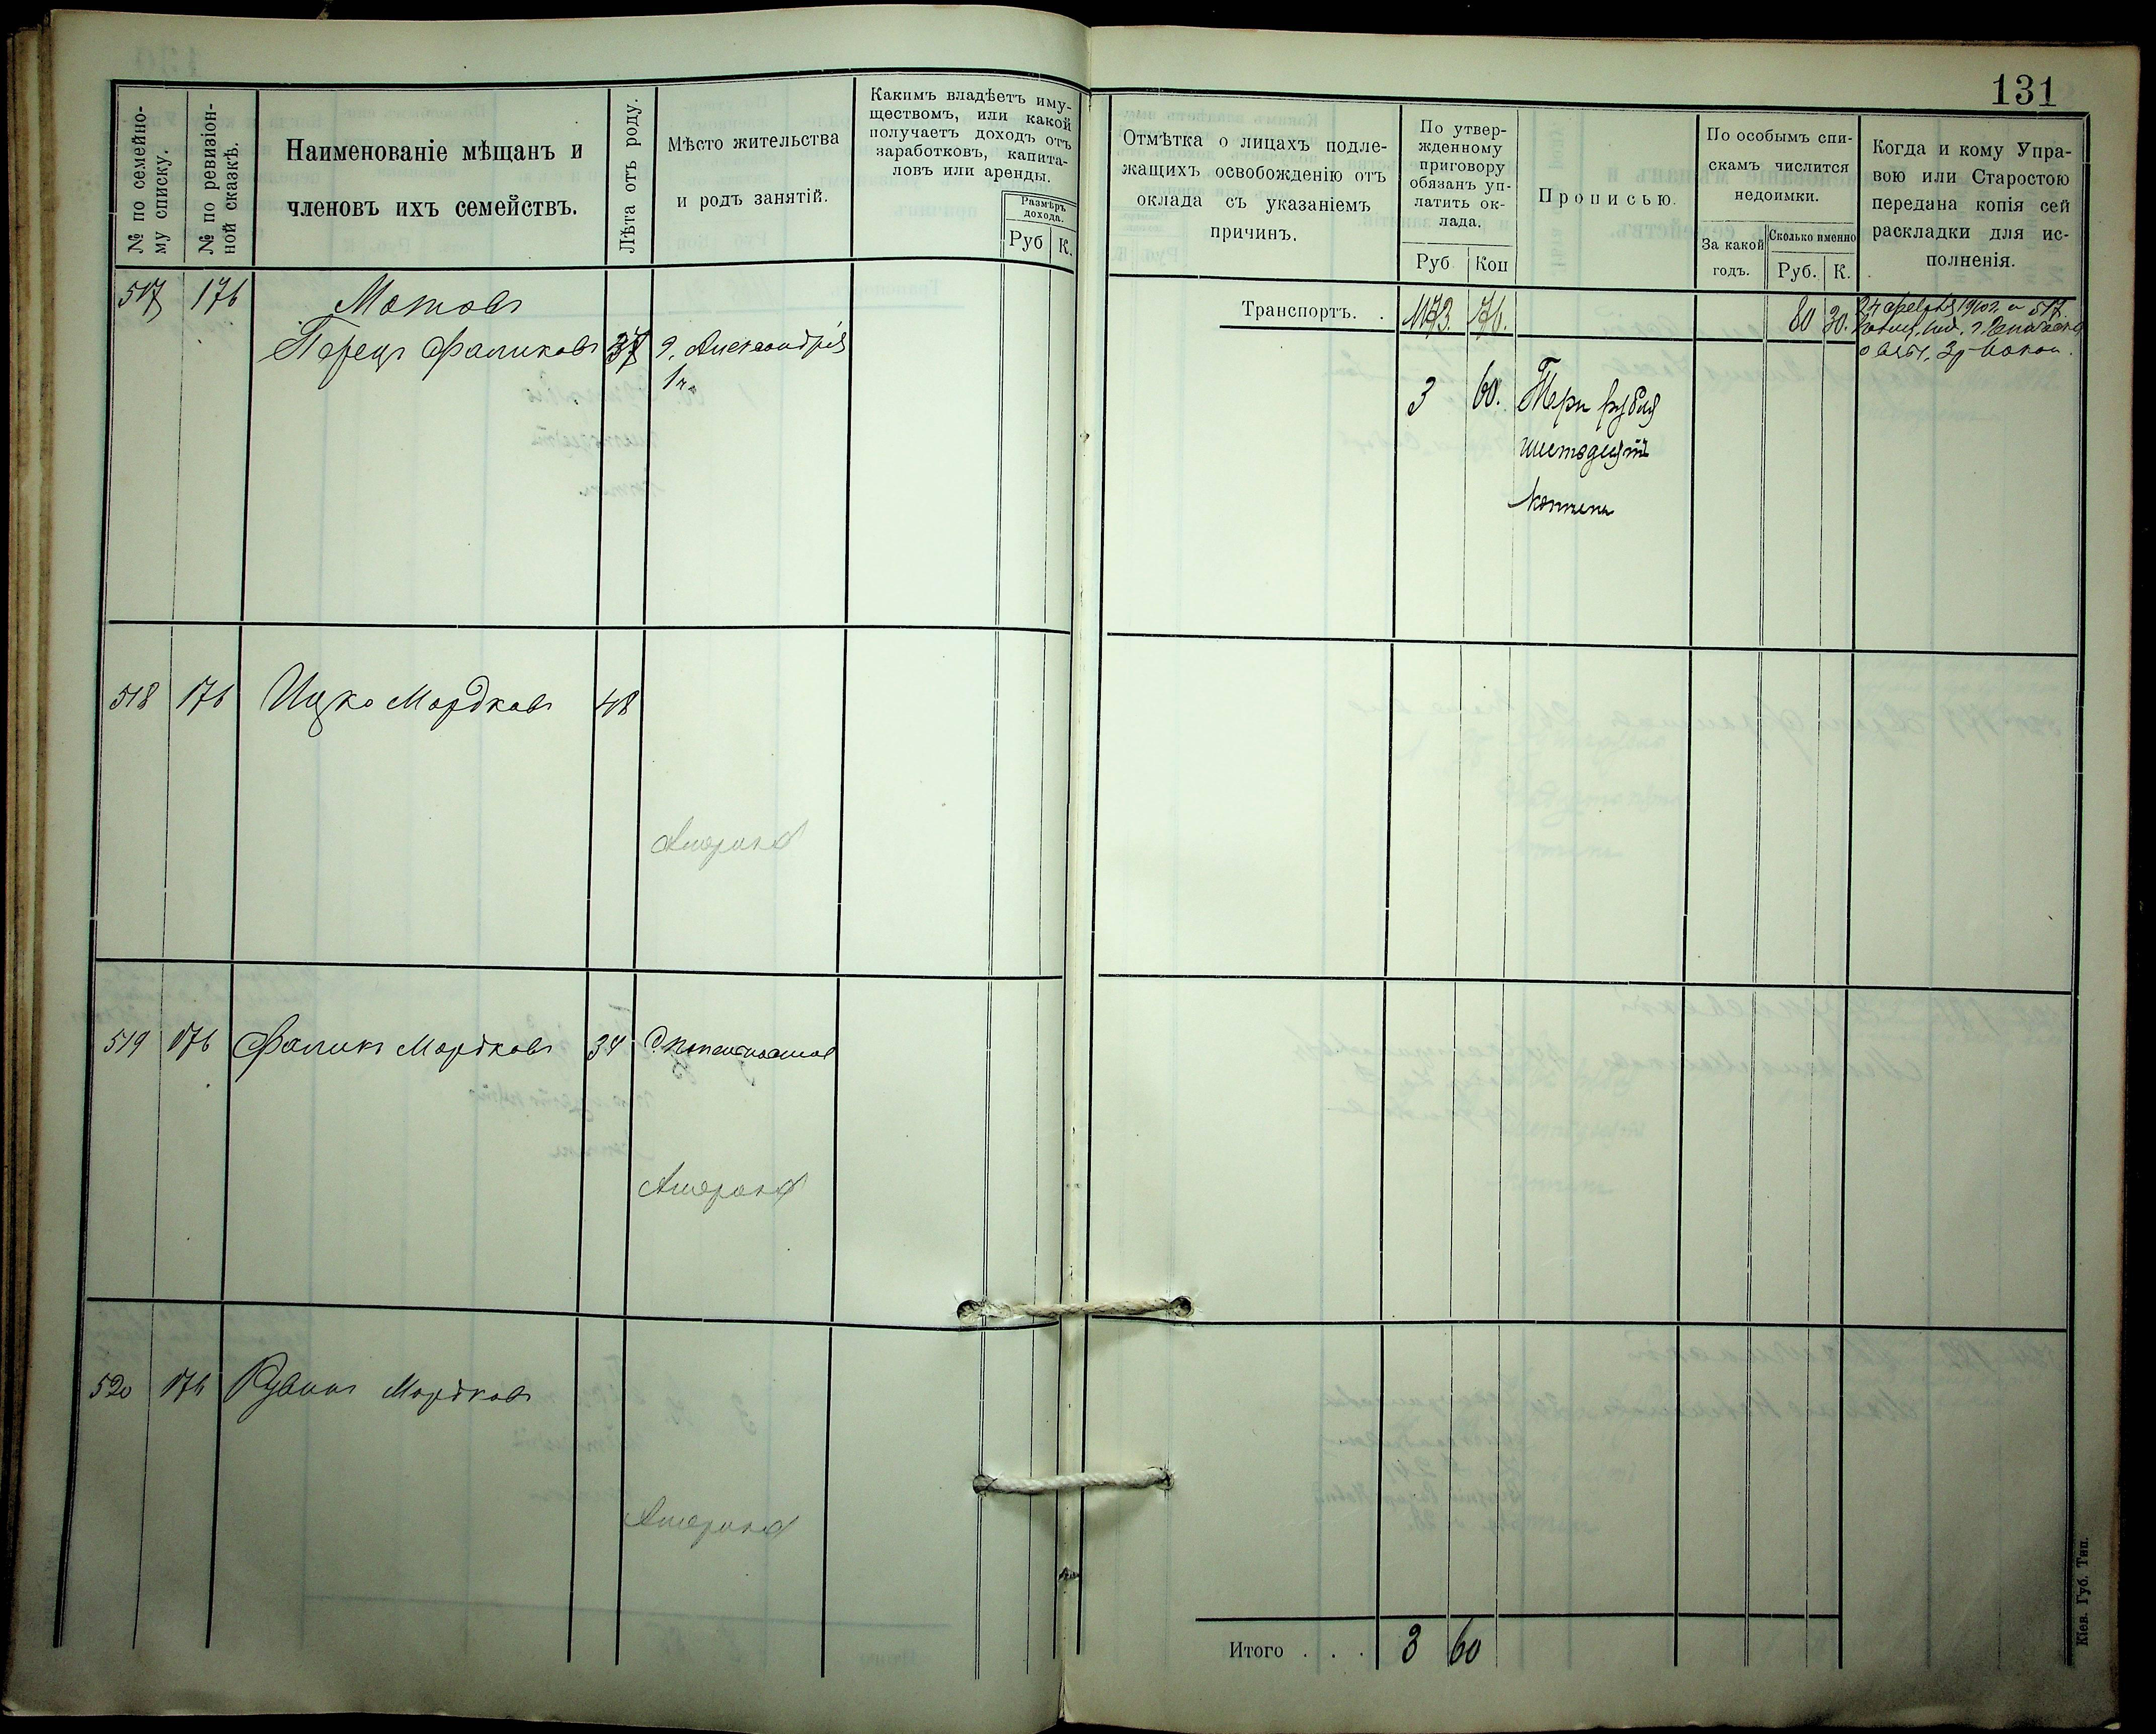 131
№ по семейно-
му списку.
№ по ревизіон-
ной сказкѣ.
Наименованіе мѣщанъ и
членовъ ихъ семействъ.
Лѣта отъ роду.
Мѣсто жительства
и родъ занятій.
Какимъ владѣетъ иму-
ществомъ, или какой
получаетъ доходъ отъ
заработковъ, капита-
ловъ или аренды.
Размѣръ
дохода.
Руб К.
Отмѣтка о лицахъ подле-
жащихъ освобожденію отъ
оклада съ указаніемъ
причинъ.
По утвер-
жденному
приговору
обязанъ уп-
латить ок-
лада.
Руб Коп
Прописью.
По особымъ спи-
скамъ числится
недоимки.
За какой
годъ.
Сколько именно
Руб. К.
Когда и кому Упра-
вою или Старостою
передана копія сей
раскладки для ис-
полненія.
517 176
Перецъ Фаликовъ 37 г. Александрія
Транспортъ. . 1173. 76. 80 30.
3 60. Три рубля
шестьдесятъ
копѣекъ
518 176 Ицко Мордковъ 48
Америка
519 176 Фаликъ Мордковъ 34
Америка
520 176 Рувинъ Мордковъ
Америка
Итого . . . 3 60
Кіев. Губ. Тип.